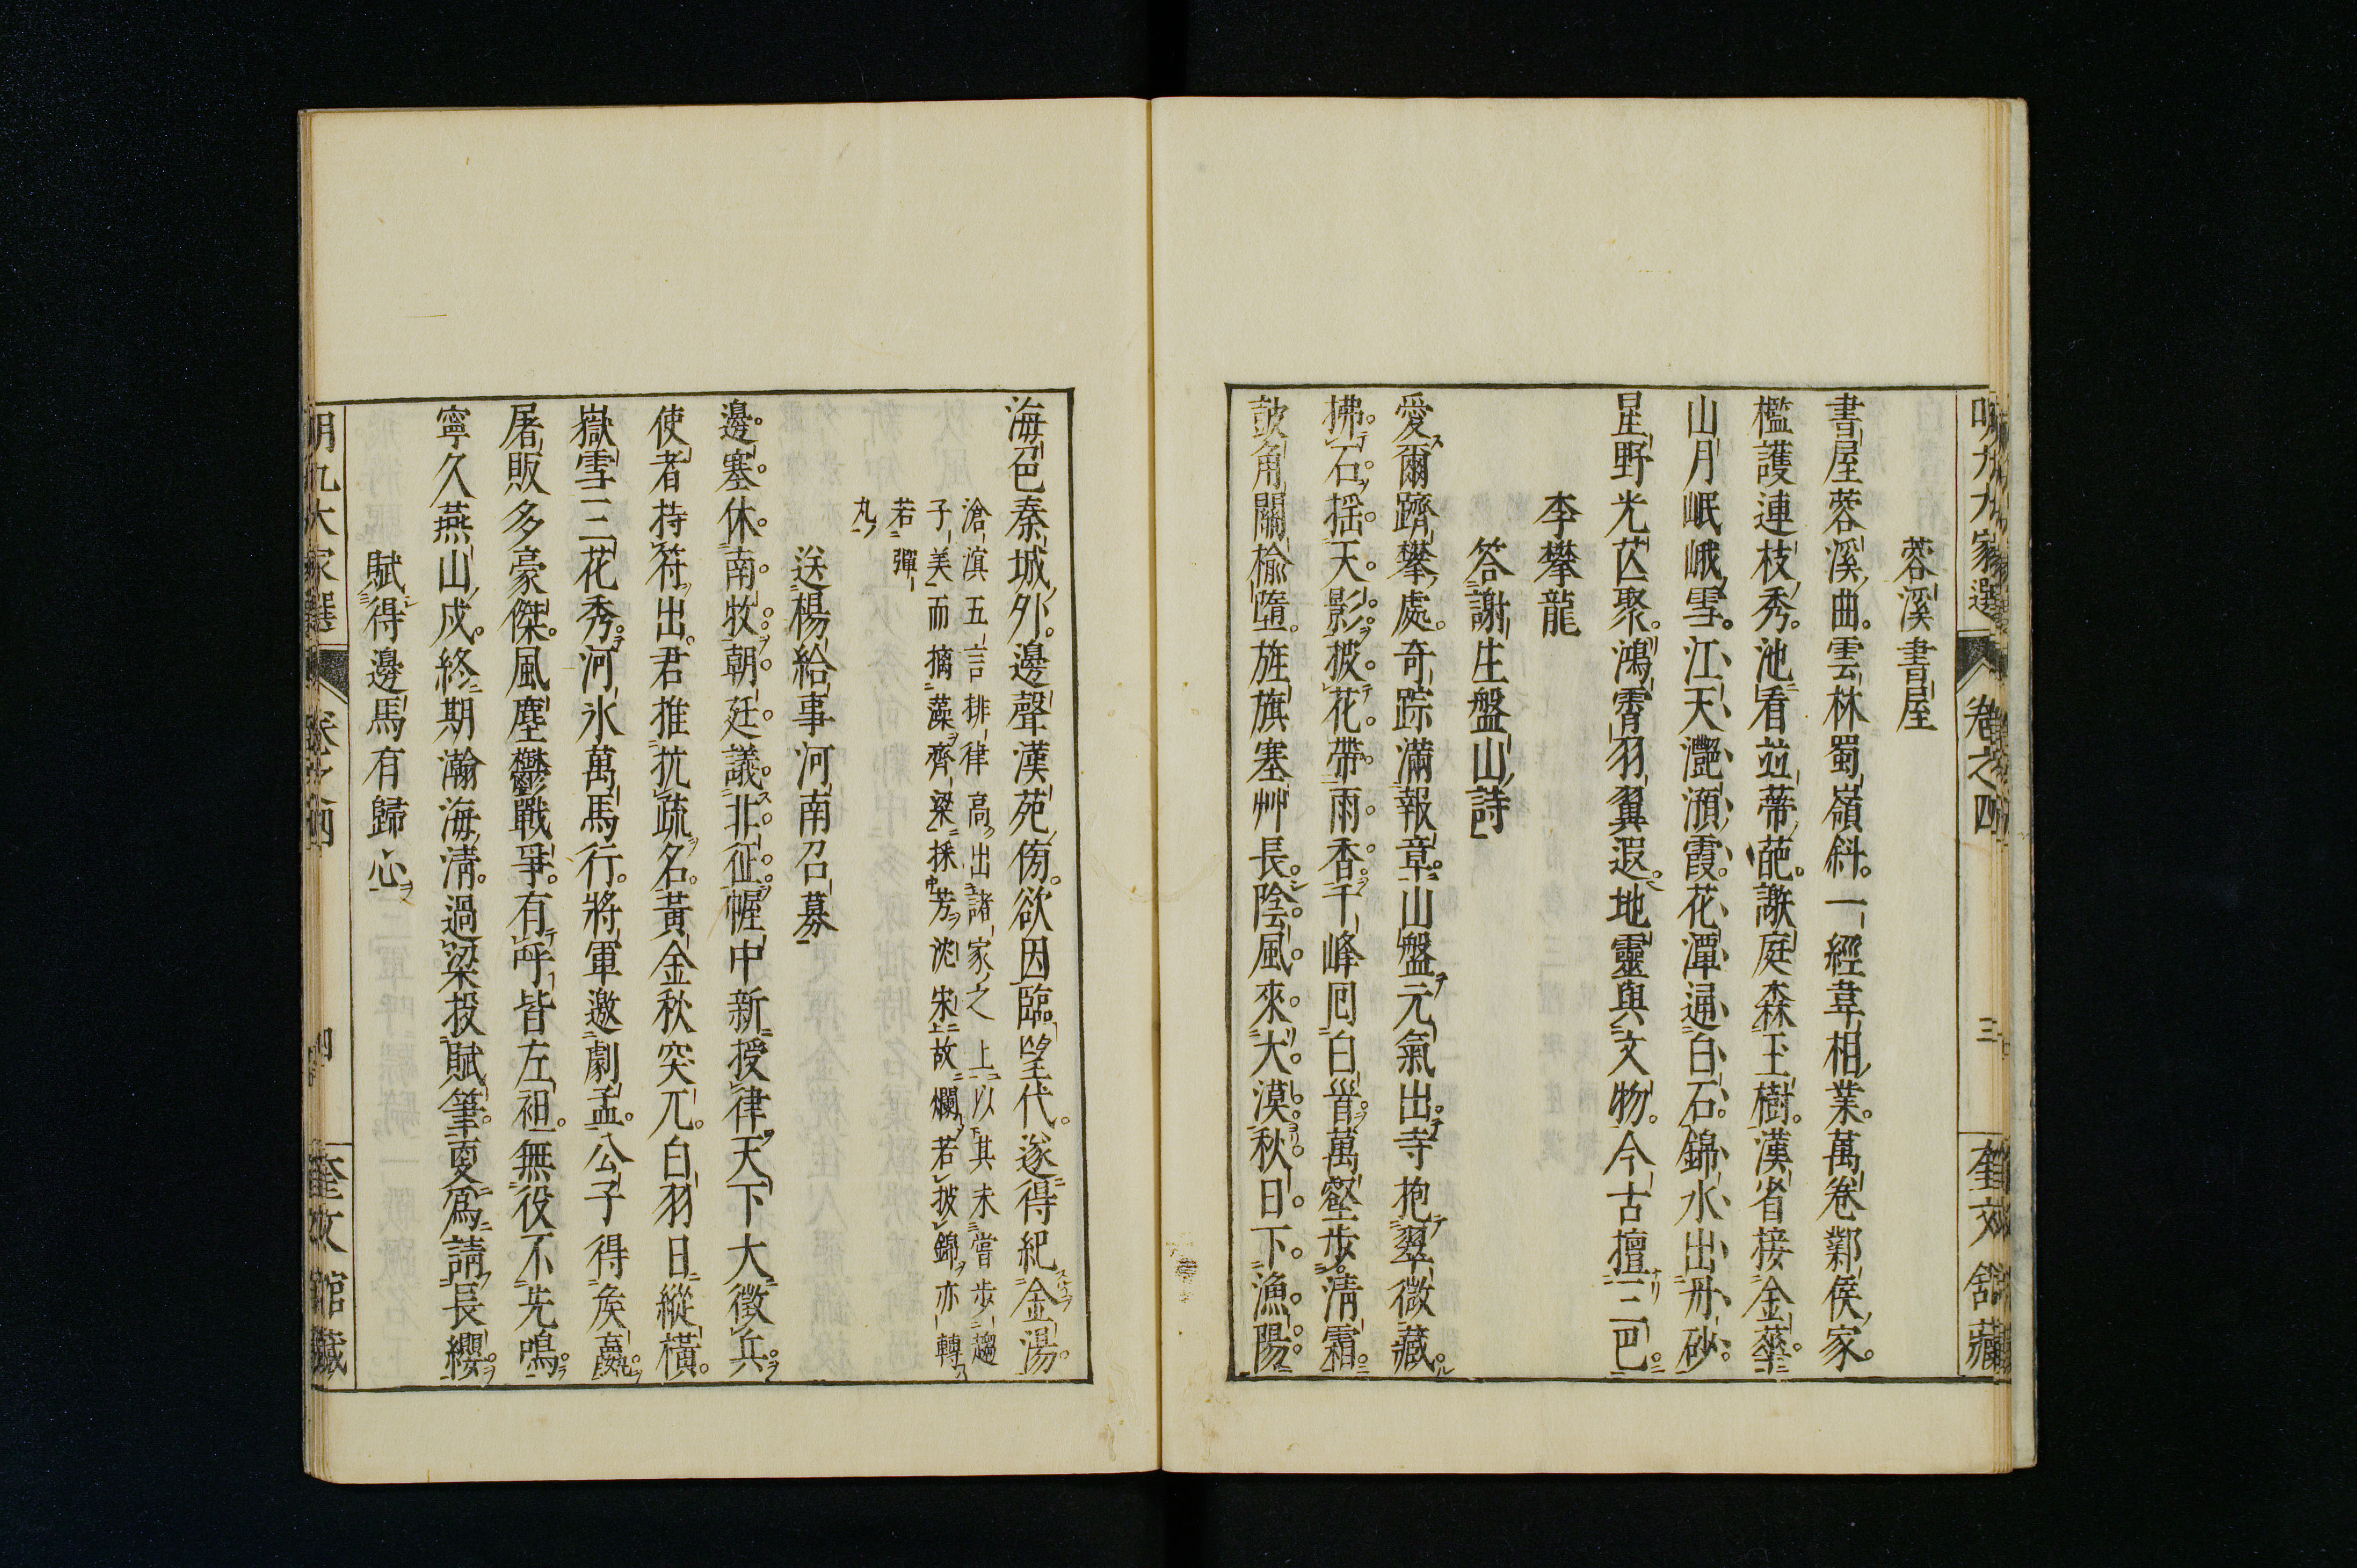 蓉溪書屋
書屋蓉溪曲雲林蜀嶺斜一經韋相業萬卷鄴侯家
檻護連枝秀池看並蒂葩謝庭森玉樹漢省接金華
山月岷峨雪江天灔澦霞花潭通白石錦水出丹砂
星野光芒聚鴻霄羽翼遐地靈與文物今古擅三巴
李攀龍
答謝生盤山詩
愛爾躋攀處奇踪滿報章山盤元氣出寺抱翠微藏
拂石搖天影披花帶雨香千峰回白首萬壑步清霜
鼓角關楡墮旌旗塞艸長陰風來大漠秋日下漁陽
海色秦城外邊聲漢苑傍欲因臨望代遂得紀金湯
滄溟五言排律高出諸家之上以其未嘗步趨
子美而摛藻齊梁採芳沈宋故爛若披錦亦轉
若彈
丸
送楊給事河南召募
邊塞休南牧朝廷議北征幄中新授律天下大徵兵
使者持符出君推抗疏名黃金秋突兀白羽日縱橫
嶽雪三花秀河氷萬馬行將軍邀劇孟公子得矦嬴
屠販多豪傑風塵鬱戰爭有呼皆左袒無役不先鳴
寧久燕山戍終期瀚海淸過梁投賦筆更爲請長纓
賦得邊馬有歸心
明九大家選
卷之四
四
奎文舘藏